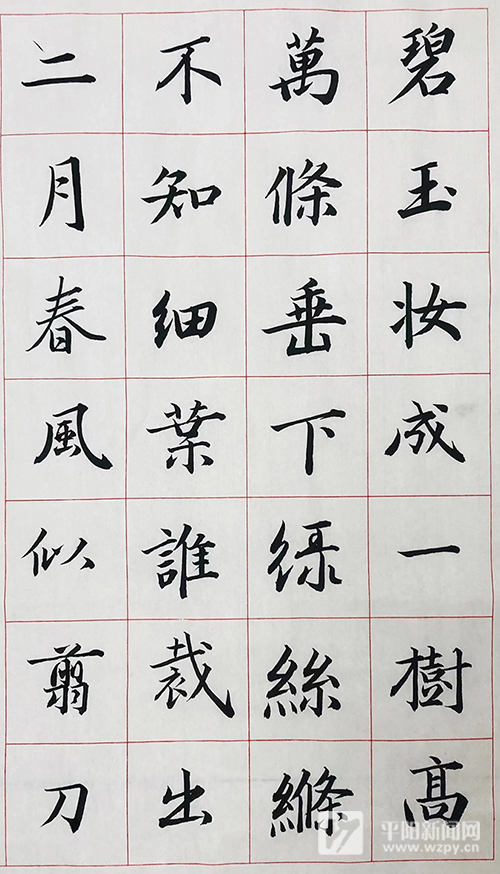 碧玉妆成一樹高
萬條垂下緑絲縧
不知細葉誰裁出
二月春風似翦刀
平阳新闻网
www.wzpy.cn